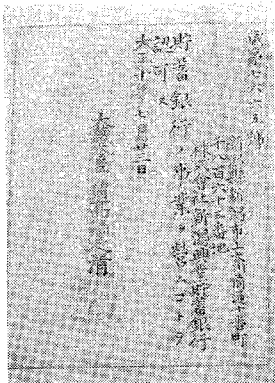 新潟縣新潟市上大川前通十番町
千八百六十三番地
株式會社新潟興業貯蓄銀行
貯蓄銀行ノ事業ヲ營ムコトヲ
認可ス
大正十年十二月廿二日
大藏大臣 是清